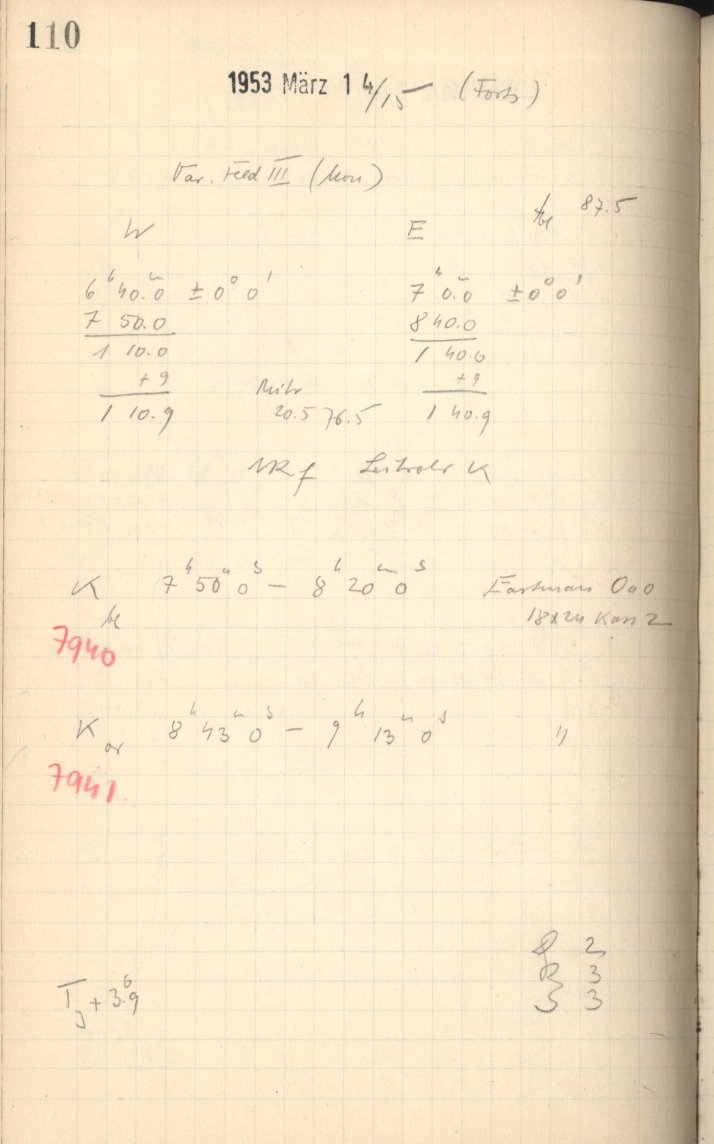 110
1953 März 14/15 (Forts)
Var. Feld III (Mon)
be 87.5
W E
6ʰ 40.ᵐ0 ±0° 0' 7ʰ 0.ᵐ0 ±0° 0'
7 50.0 8 40.0
1 10.0 1 40.0
+9 +9
1 10.9 1 40.9
Mikr
20.5 76.5
NRf Leitrohr K
K be 7ʰ 50ᵐ 0ˢ – 8ʰ 20ᵐ 0ˢ Eastman OaO
18x24 Kass 2
7940
K or 8ʰ 43ᵐ 0ˢ – 9ʰ 13ᵐ 0ˢ "
7941
2
R 3
S 3
T + 3.°9